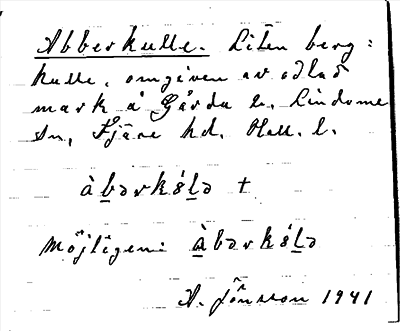 Abberkulle. Liten berg=
kulle, omgiven av odlad
mark å Gårda L. Lindome
sn, Fjäre hd. Hall. l.
àbərkʹələ +
Möjligen: àbərkʹələ
A. Jönsson 1941